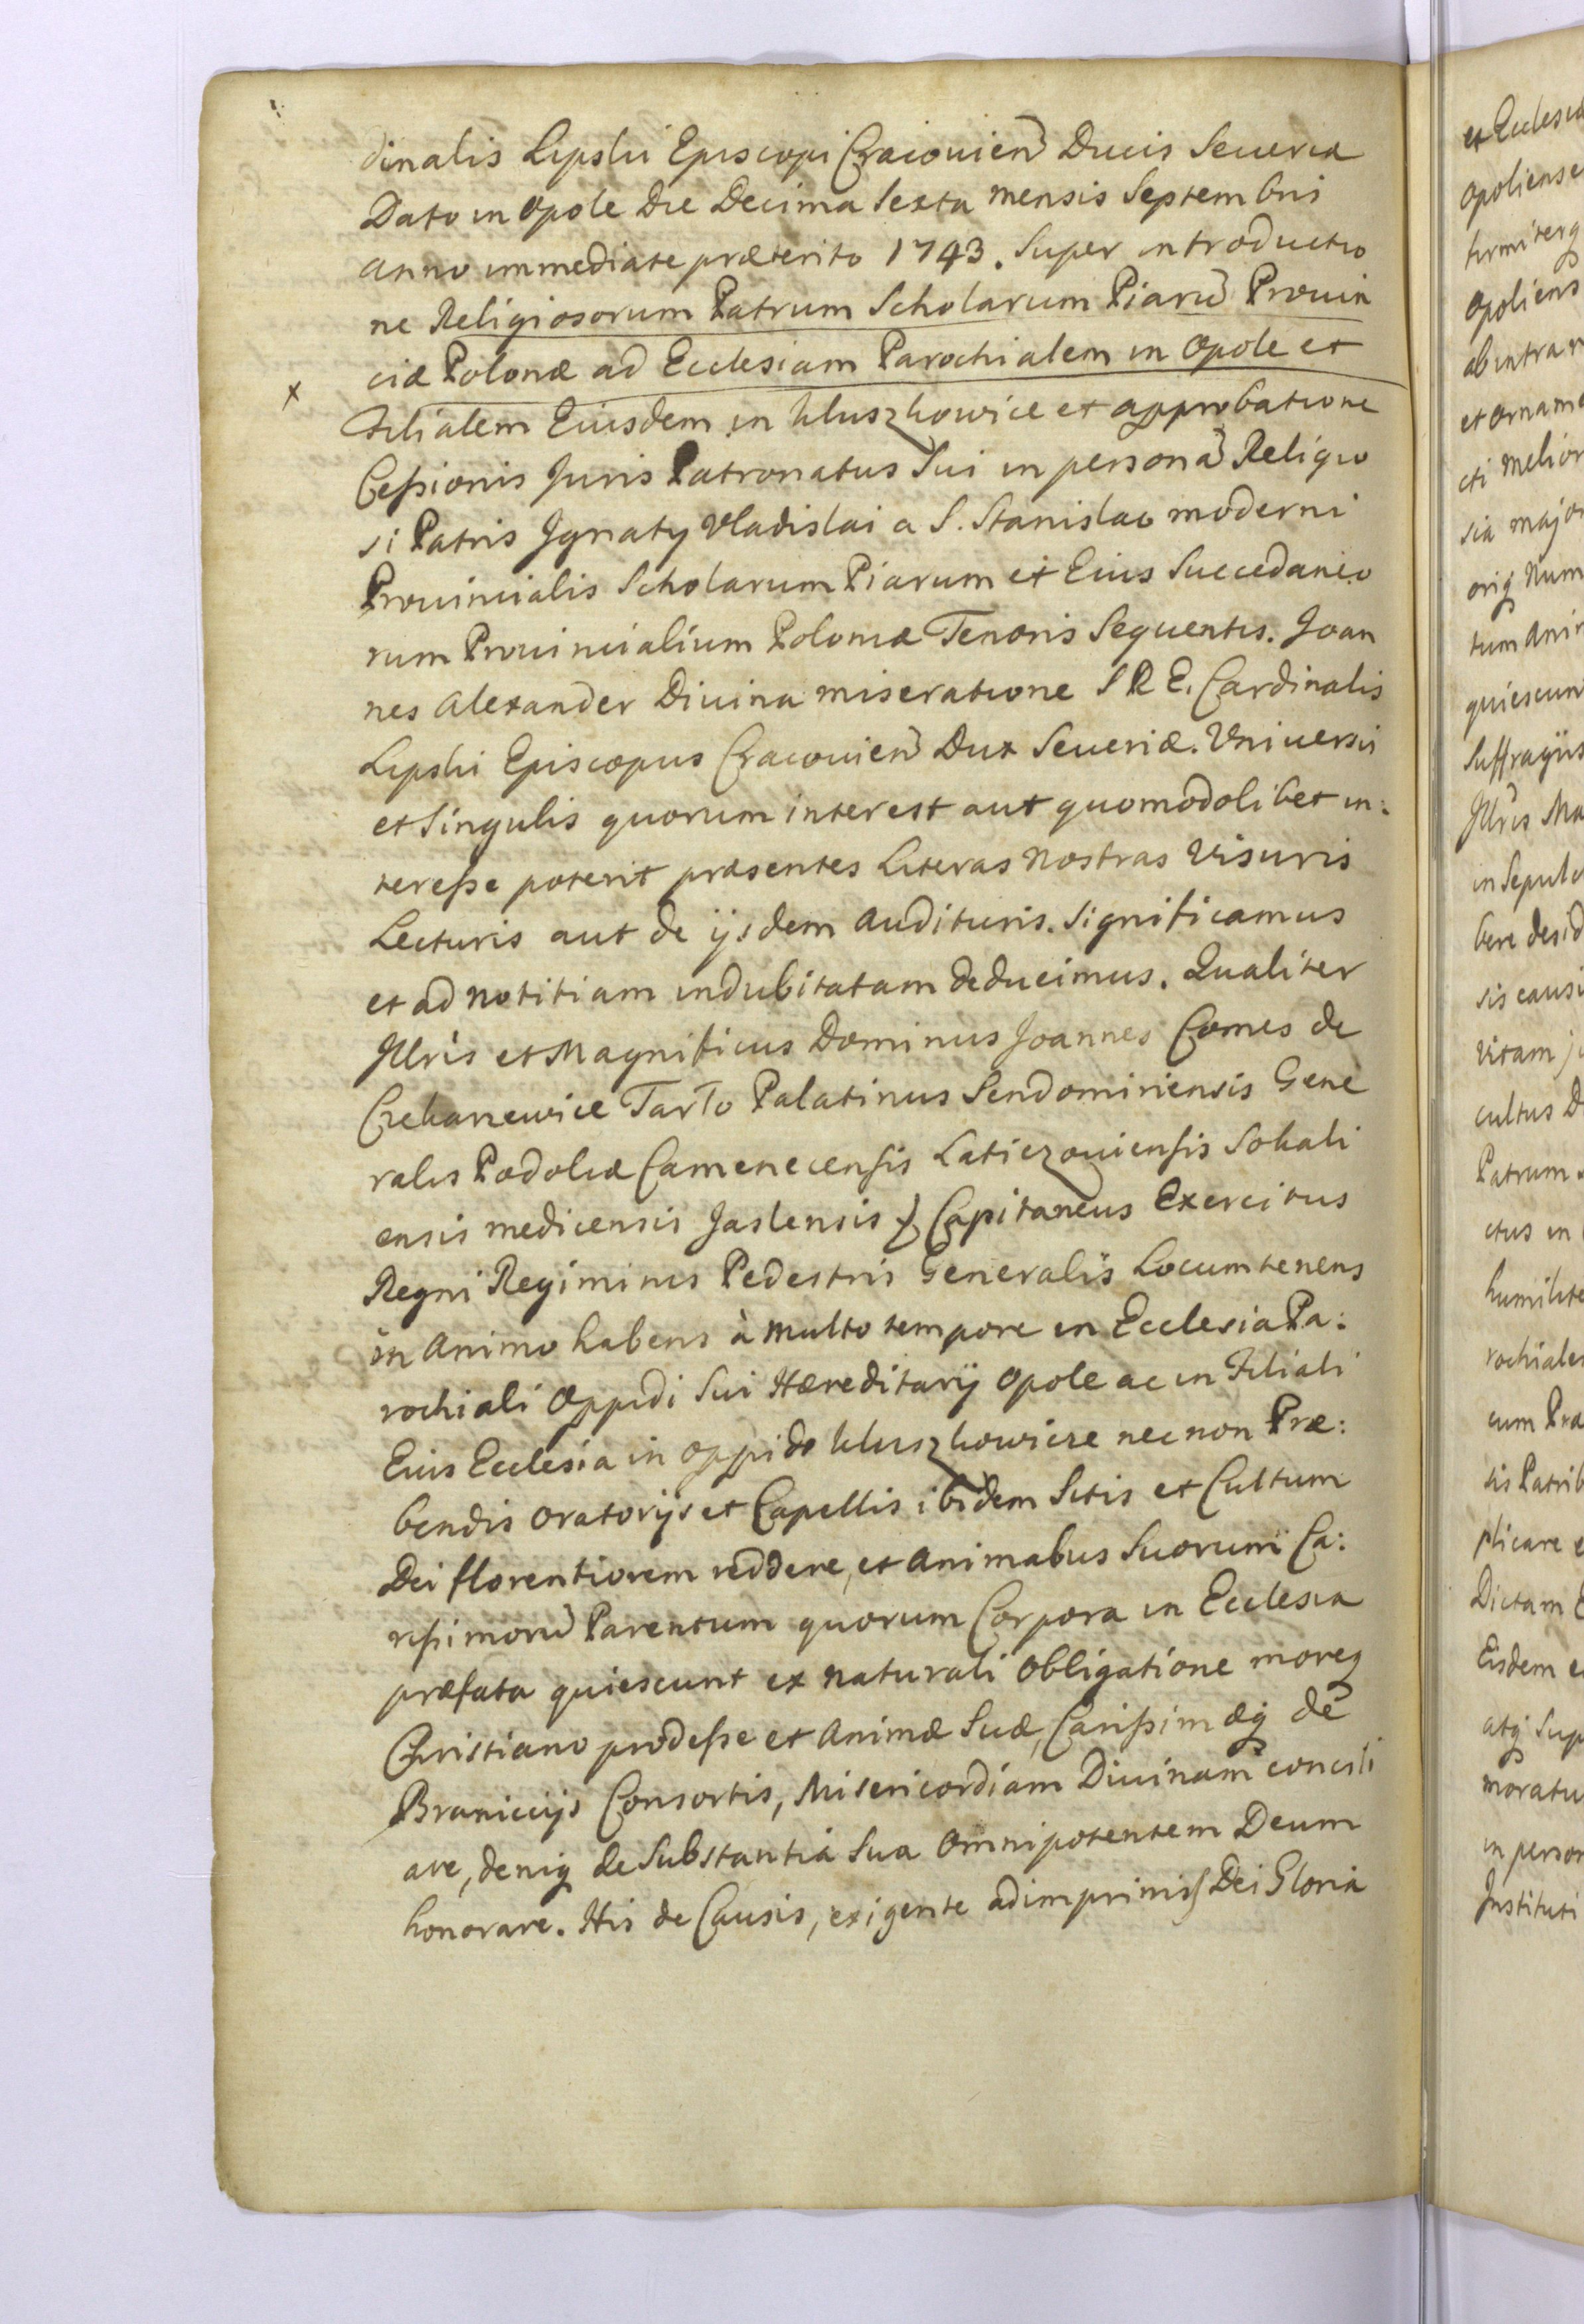 dinalis Lipski Episcopi Cracovien Ducis Severiæ
Dato in Opole Die Decima Sexta mensis Septembris
anno immediate præterito 1743. Super introductio
ne Religiosorum Patrum Scholarum Piarũ Provin
ciæ Polonæ ad Ecclesiam Parochialem in Opole et
x
Filialem Eiusdem in Kluszkowice et approbatione
Cessionis Juris Patronatus Sui in personã Religio
si Patris Ignatij Vladislai a S. Stanislao moderni
Provincialis Scholarum Piarum et Eius Succedaneo
rum Provincialium Poloniæ Tenoris Sequentis. Joan
nes Alexander Divina miseratione S R E. Cardinalis
Lipski Episcopus Cracovien Dux Severiæ. Universis
et Singulis quorum interest aut quomodolibet in:
teresse poterit præsentes Literas Nostras Visuris
Lecturis aut de ijsdem Audituris. Significamus
et ad Notitiam indubitatam deducimus. Qualiter
Jllris et Magnificus Dominus Joannes Comes de
Czekarzewice Tarło Palatinus Sendomiriensis Gene
ralis Podoliæ Camenecensis Laticzoviensis Sokali
ensis medicensis Jaslensis & Capitaneus Exercitus
Regni Regiminis Pedestris Generalis Locumtenens
in Animo habens à multo tempore in Ecclesia Pa:
rochiali Oppidi Sui Hæreditarij Opole ac in Filiali
Eius Ecclesia in Oppido Kluszkowicze nec non Præ:
bendis Oratorijs et Capellis ibidem Sitis et Cultum
Dei florentiorem reddere, et Animabus Suorum Ca:
rissimorũ Parentum quorum Corpora in Ecclesia
præfata quiescunt ex naturali Obligatione moreq
Christiano prodesse et Animæ Suæ, Carissimæq de
Braniccijs Consortis, Misericordiam Divinam concili
are, deniq de Substantia Sua Omnipotentem Deum
honorare. His de Causis, exigente adimprimis Dei Gloria
et Ecclesia
Opoliense
Opoliens
ab intra
et orname
cti melior
sia major
oriq Num
tum Anim
quiescun
Suffragijs
Jllris Ma
in Sepul
bere desid
sis causi
vitam
cultus D
Patrum
ctus in
humilite
rochiales
cum Præ
sis Patrib
plicare
Dictam E
Eisdem
atq Sup
moratu
in person
Instituti